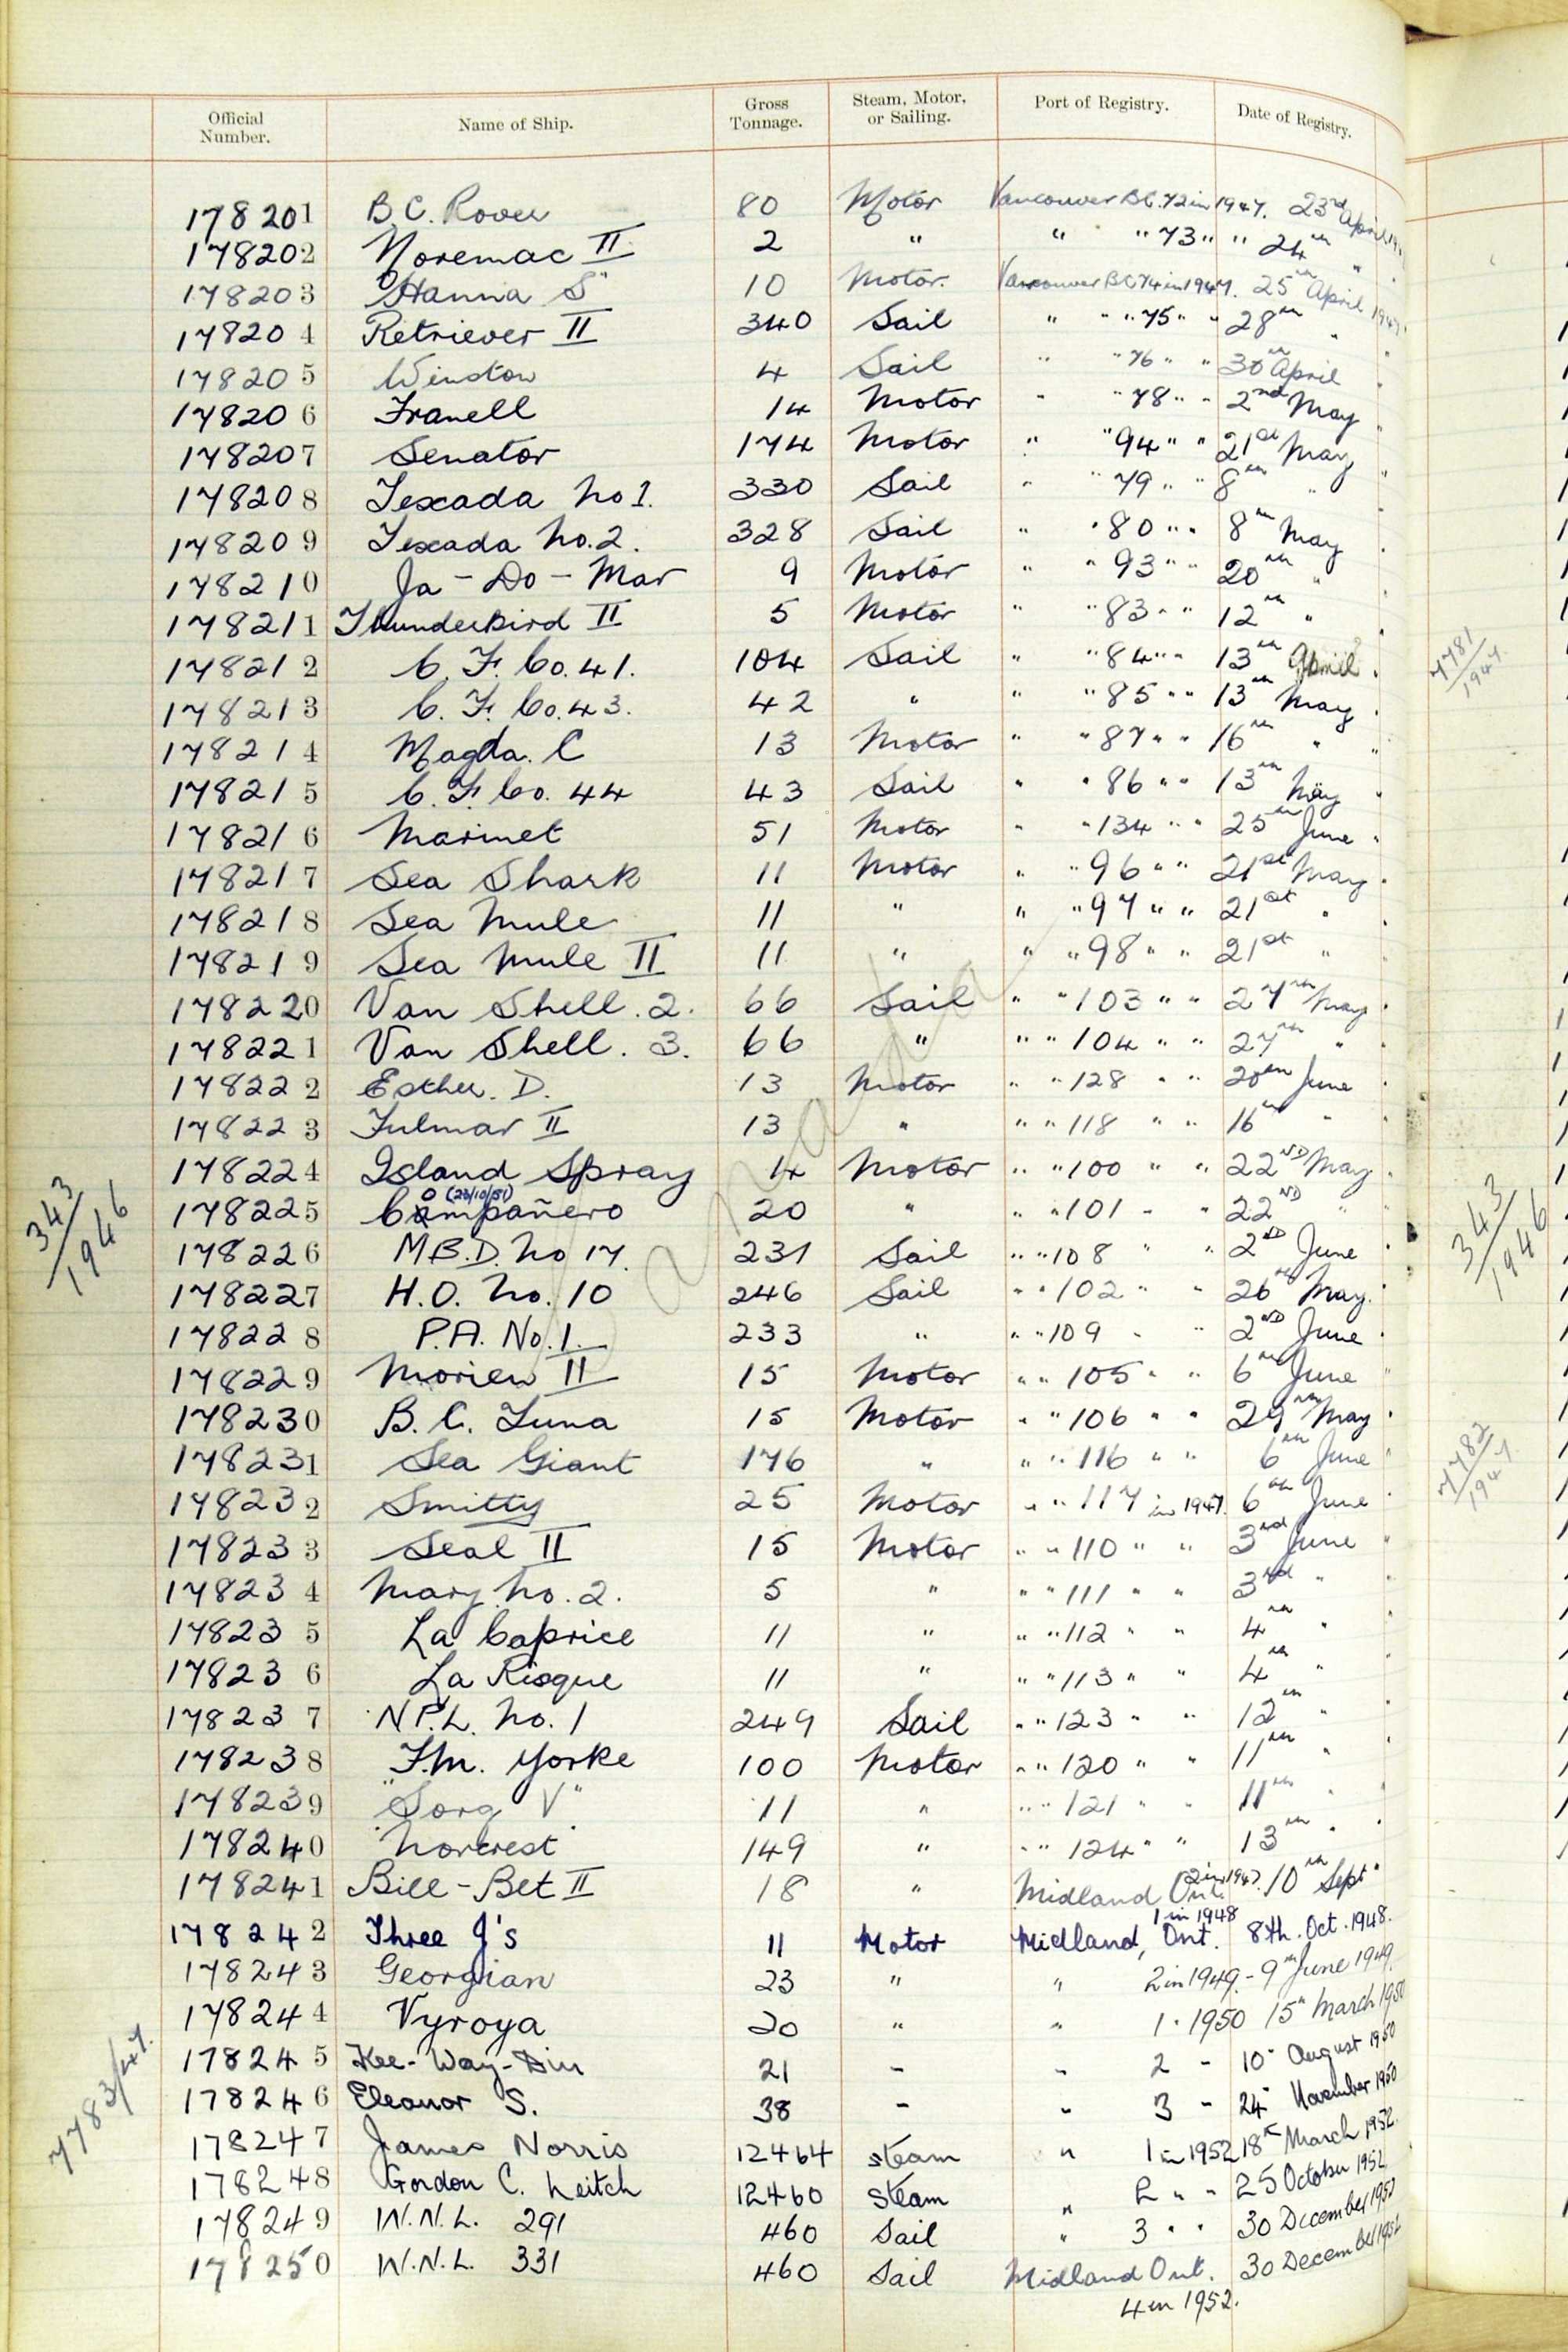 Official Number. Name of Ship. Gross Tonnage. Steam, Motor, or Sailing. Port of Registry. Date of Registry.
178201 B.C. Rover 80 Motor Vancouver B.C. 72 in 1947. 23rd April
178202 Noremac II 2 " " " 73 " " 24th "
178203 "Hanna S" 10 Motor. Vancouver BC 74 in 1947. 25th April 1947
178204 Retriever II 340 Sail " " " 75 " " 28th "
178205 Winston 4 Sail " " 76 " " 30th April "
178206 Franell 14 Motor " " 78 " " 2nd May
178207 Senator 174 Motor " " 94 " " 21st May "
178208 Texada No 1. 330 Sail " " 79 " " 8th "
178209 Texada No. 2. 328 Sail " " 80 " " 8th May "
178210 Ja - Do - Mar 9 Motor " " 93 " " 20th "
178211 Thunderbird II 5 Motor " " 83 " " 12th " "
178212 C. F. Co. 41. 104 Sail " " 84 " " 13th April "
178213 C. F. Co. 43. 42 " " " 85 " " 13th May "
178214 Magda. C 13 Motor " " 87 " " 16th " "
178215 C. F. Co. 44 43 Sail " " 86 " " 13th May "
178216 Marinet 51 Motor " " 134 " " 25th June "
178217 Sea Shark 11 Motor " " 96 " " 21st May "
178218 Sea Mule 11 " " " 97 " " 21st " "
178219 Sea Mule II 11 " " " 98 " " 21st " "
178220 Van Shell. 2. 66 Sail " " 103 " " 27th May "
178221 Van Shell. 3. 66 " " " 104 " " 27th " "
178222 Esther. D. 13 Motor " " 128 " " 20th June "
178223 Fulmar II 13 " " " 118 " " 16th " "
178224 Island Spray 4 Motor " " 100 " " 22ND May "
o (23/10/51)
178225 Campañero 20 " " " 101 " " 22ND " "
343/1946
178226 M.B.D. No 17. 231 Sail " " 108 " " 2ND June "
178227 H.O. No. 10 246 Sail " " 102 " " 26th May.
178228 P.A. No. 1. 233 " " " 109 " " 2ND June "
178229 Morien II 15 Motor " " 105 " " 6th June "
178230 B. C. Tuna 15 Motor " " 106 " " 29th May "
178231 Sea Giant 176 " " " 116 " " 6th June "
178232 Smitty 25 Motor " " 117 in 1947. 6th June "
178233 Seal II 15 Motor " " 110 " " 3rd June "
178234 Mary No. 2. 5 " " " 111 " " 3rd " "
178235 La Caprice 11 " " " 112 " " 4th " "
178236 La Risque 11 " " " 113 " " 4th " "
178237 N.P.L. No. 1 249 Sail " " 123 " " 12th " "
178238 F.M. Yorke 100 Motor " " 120 " " 11th " "
178239 "Sorg V" 11 " " " 121 " " 11th " "
178240 "Norcrest" 149 " " " 124 " " 13th " "
178241 Bill-Bet II 18 " Midland Ont. 2 in 1947. 10th Sept "
178242 Three J's 11 Motor Midland, Ont. 1 in 1948 8th. Oct. 1948.
178243 Georgian 23 " " 2 in 1949. - 9th June 1949
178244 Vyroya 20 " " 1 " 1950 15th March 1950
178245 Kee-Way-Din 21 - " 2 - 10" August 1950
178246 Eleanor S. 38 - " 3 - 24" November 1950
7783/47.
178247 James Norris 12464 steam " 1 in 1952 18th March 1952.
178248 Gordon C. Leitch 12460 Steam " 2 " " 25 October 1952
178249 W.N.L. 291 460 Sail " 3 " " 30 December 1952
178250 W.N.L. 331 460 Sail Midland Ont. 30 December 1952
4 in 1952.
Canada
7781/1947
343/1946
7782/1947